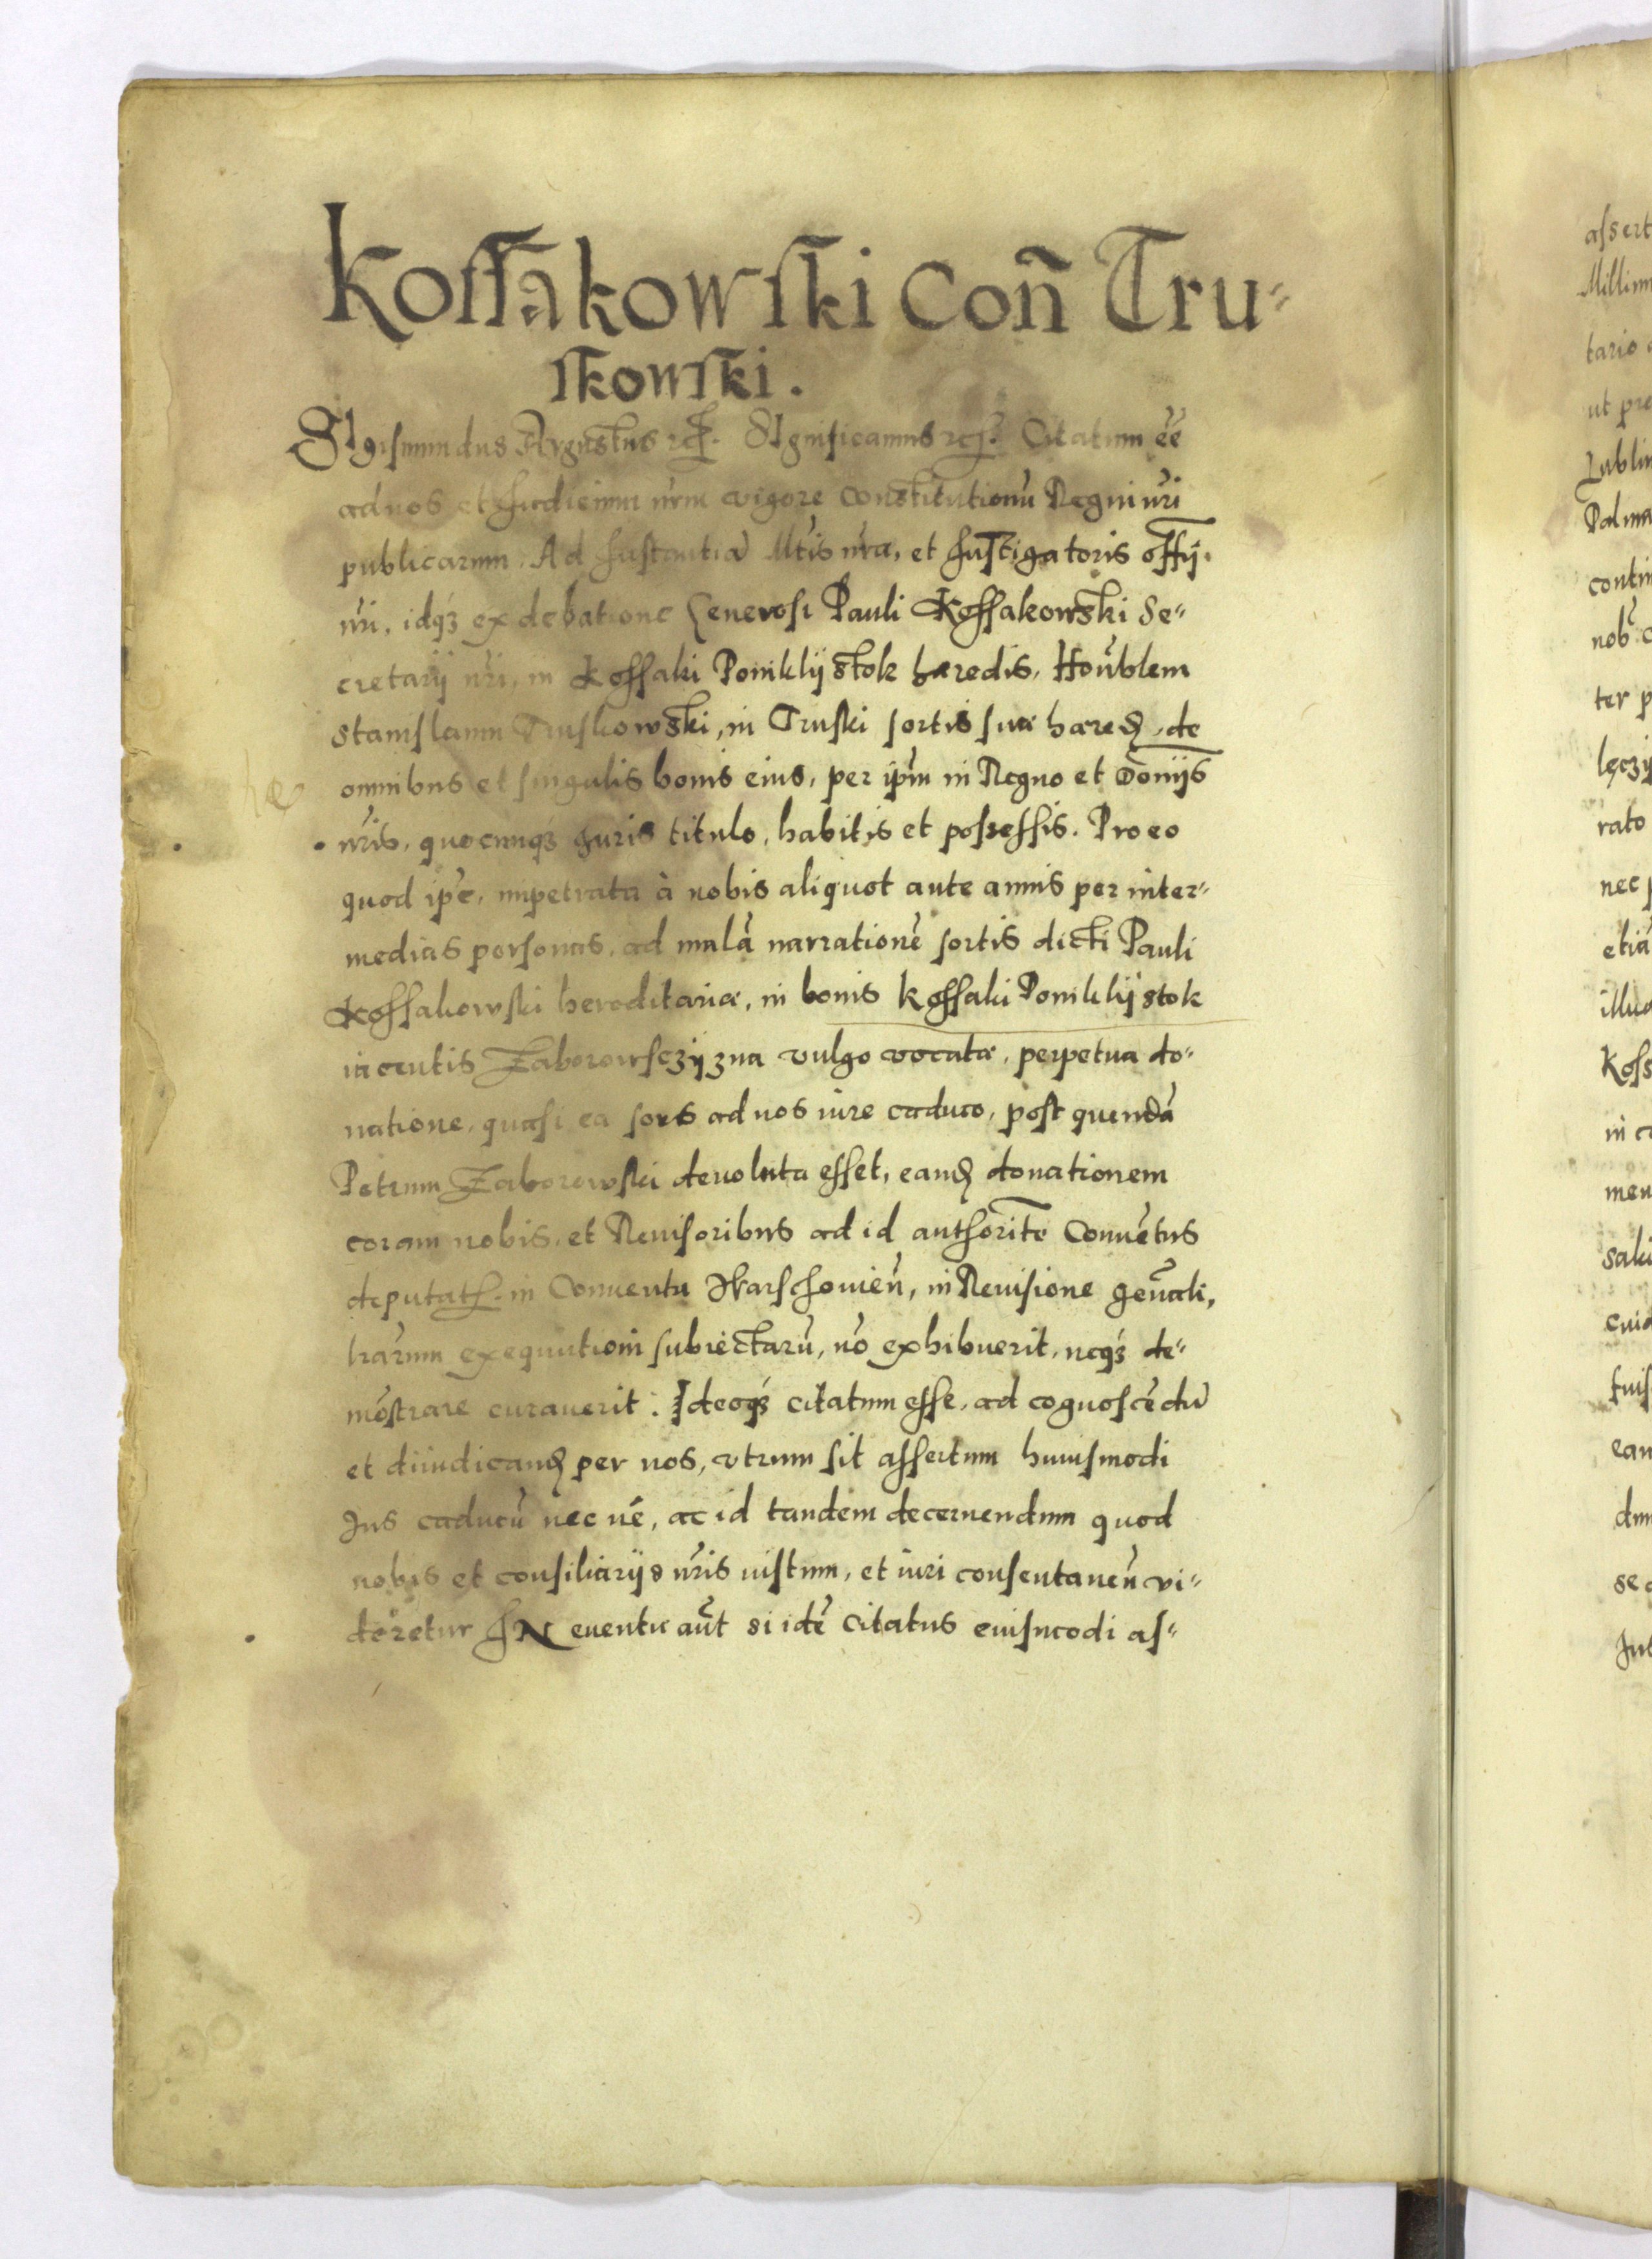 Kossakowski Con̄ Tru-
skowski.
Sigismundus Augustus etc. Significamus etc. Citatum ēē
ad nos et Iudicium nrm̄ vigore Constitutionū Regni nr̄i
publicarum. Ad Instantiā Mtis nrā, et Instigatoris offy.
nr̄i, idq₃ ex delatione Generosi Pauli Kossakowski Se-
cretarij nr̄i, in Kossaki Ponikly stok hæredis. Honblem
Stanislaum Truskowski, in Truski sortis suæ hæred, de
omnibus et singulis bonis eius, per ipm̄ in Regno et Doniijs
nr̄is, quocunq₃ Iuris titulo, habitis et possessis. Pro eo
quod ipē, impetrata à nobis aliquot ante annis per inter-
medias personas, ad malā narrationē sortis dicti Pauli
Kossakowski hereditariæ, in bonis Kossaki Ponikly stok
iacentis Zaborowsczyzna vulgo vocatæ, perpetua do-
natione, quasi ea sors ad nos iure caduco, post quendā
Petrum Zaborowski devoluta esset, eand donationem
coram nobis, et Revisoribus ad id authoritē Conventus
deputat. in Conventu Warschovien̄, in Revisione gen̄ali,
lr̄arum exequutioni subiectarū, nō exhibuerit, neq₃ de-
mōstrare curaverit. Ideoq₃ citatum esse, ad cognoscēdū
et diiudicand per nos, utrum sit assertum huiusmodi
Ius caducū nec nē, ac id tandem decernendum quod
nobis et consiliarijs nr̄is iustum, et iuri consentaneū vi-
deretur IN eventu aut̄ si idē Citatus eiusmodi as-